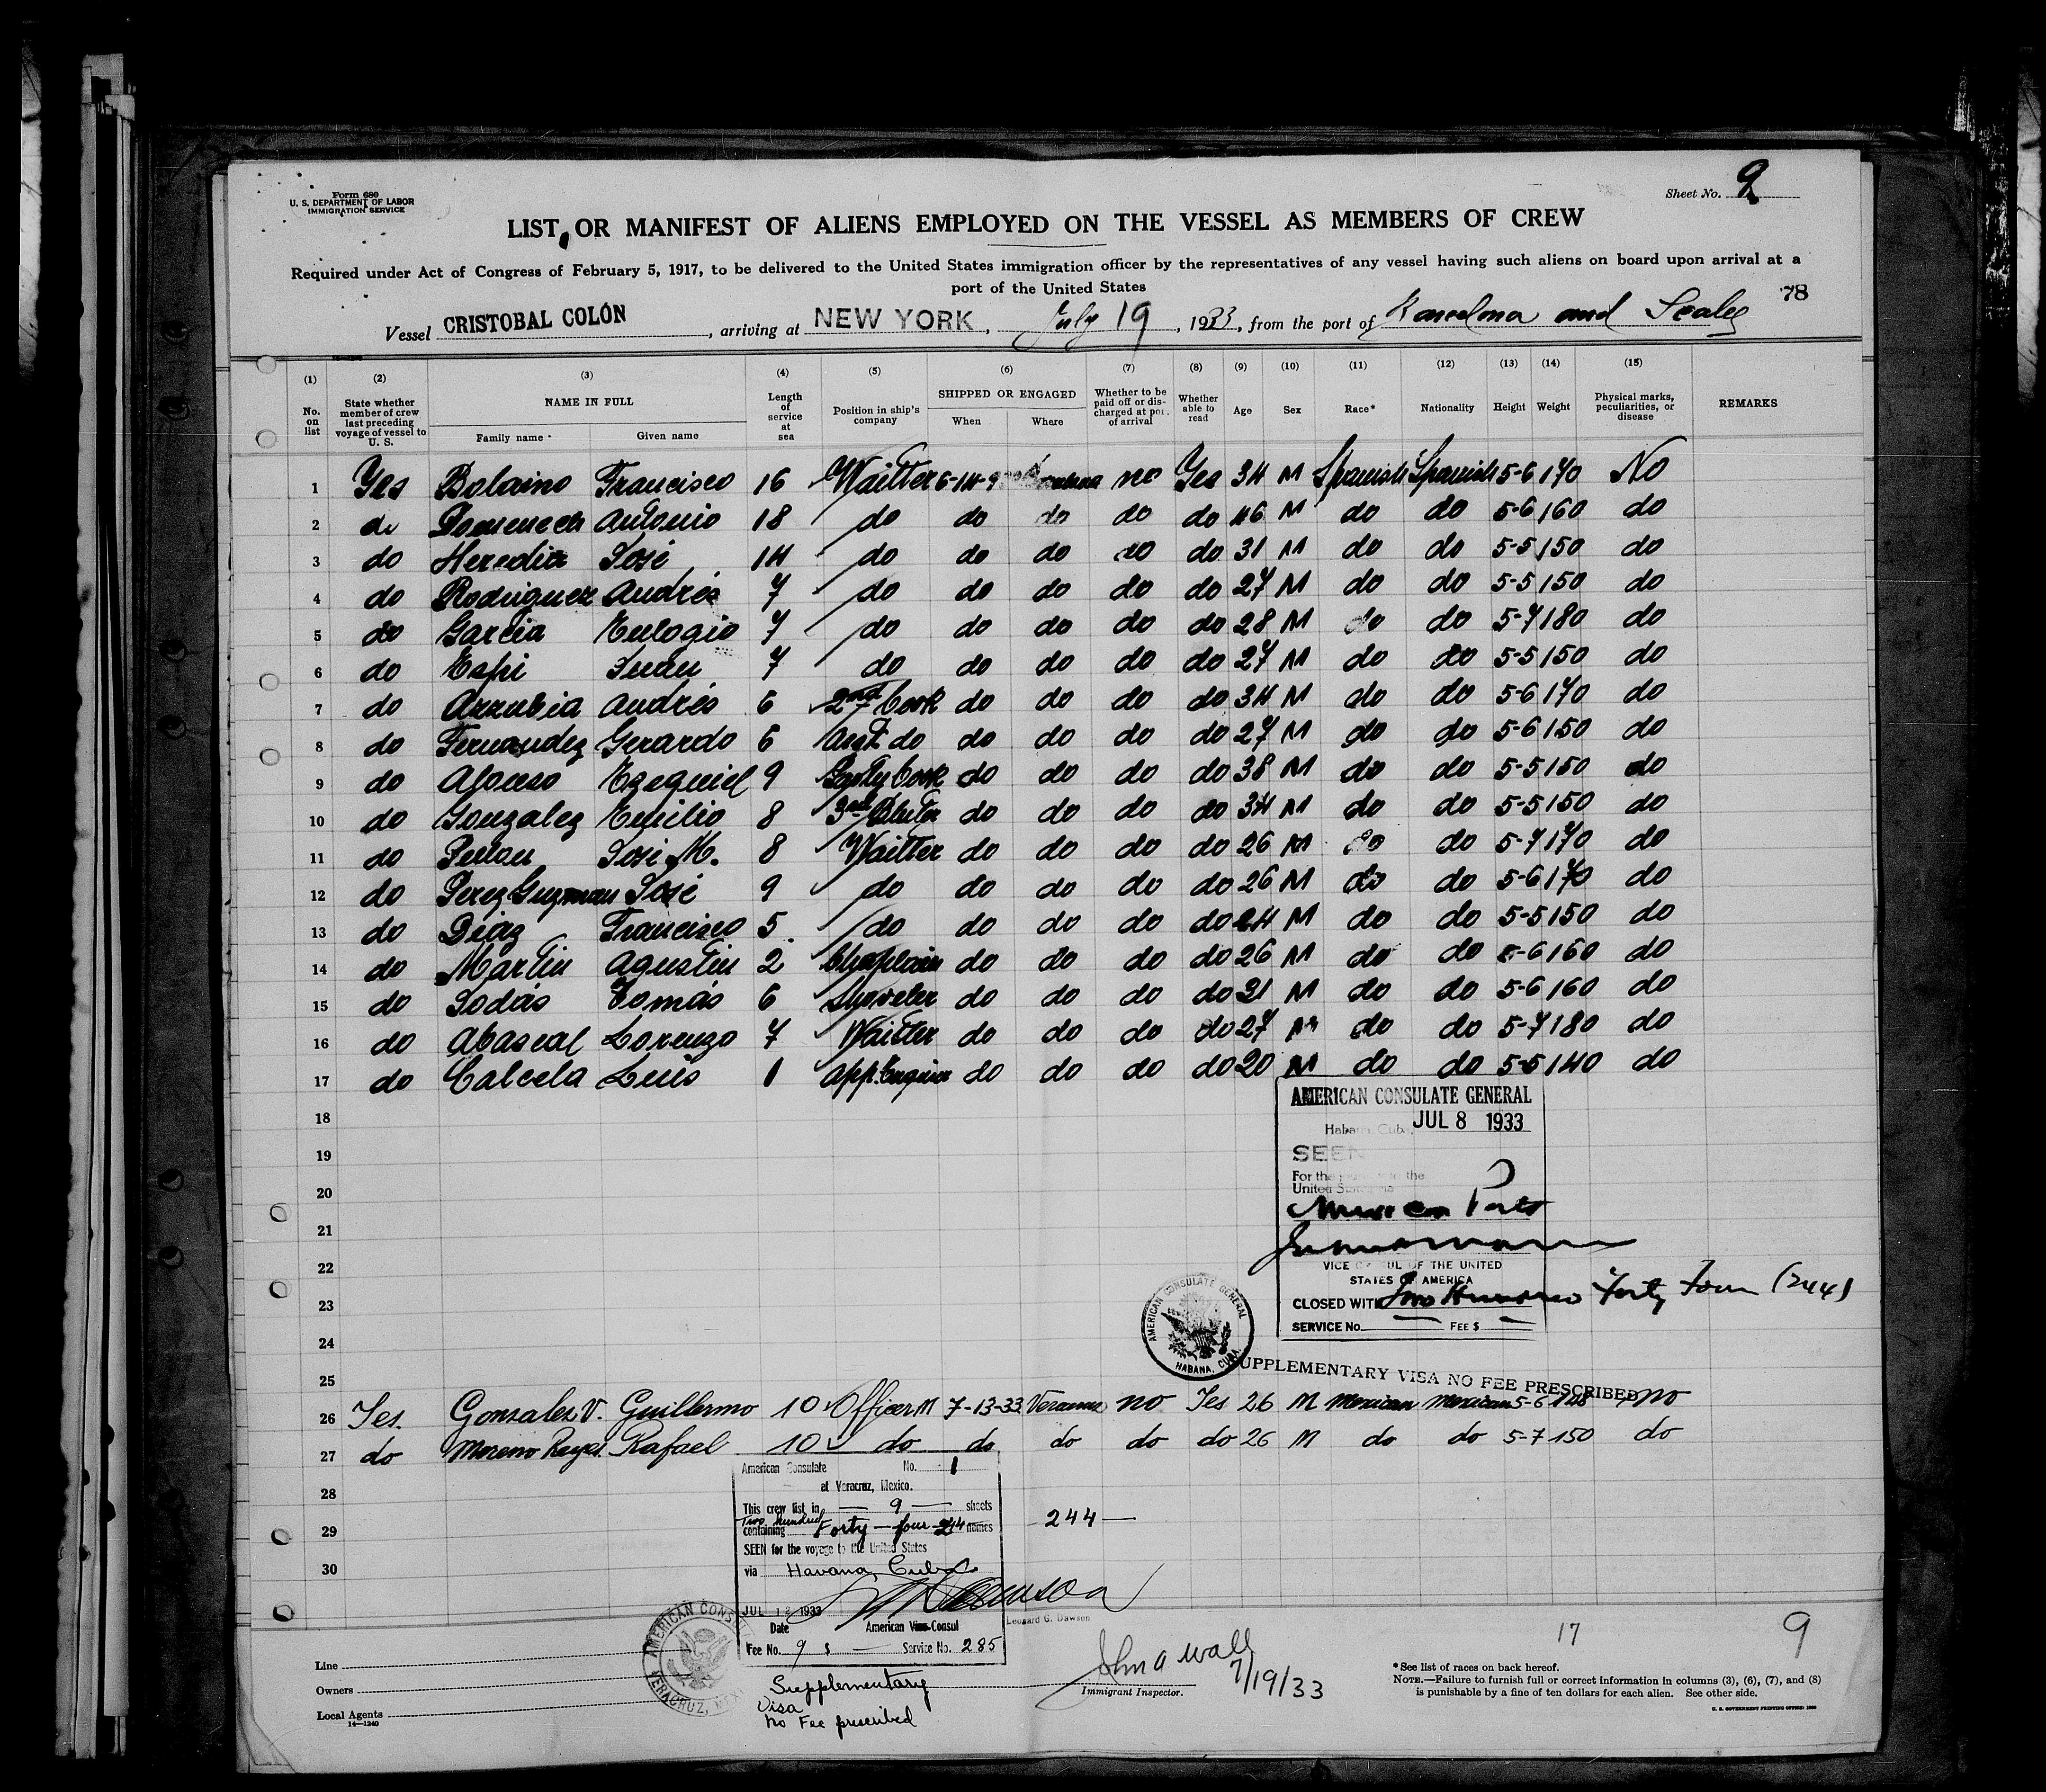 Form 680
U. S. DEPARTMENT OF LABOR
IMMIGRATION SERVICE
Sheet No. 9
LIST OR MANIFEST OF ALIENS EMPLOYED ON THE VESSEL AS MEMBERS OF CREW
Required under Act of Congress of February 5, 1917, to be delivered to the United States immigration officer by the representatives of any vessel having such aliens on board upon arrival at a
port of the United States
78
Vessel CRISTOBAL COLÓN, arriving at NEW YORK, July 19, 1933, from the port of Barcelona and Scales
(1) (2) (3) (4) (5) (6) (7) (8) (9) (10) (11) (12) (13) (14) (15)
No. on list State whether member of crew last preceding voyage of vessel to U. S. NAME IN FULL Family name Given name Length of service at sea Position in ship's company SHIPPED OR ENGAGED When Where Whether to be paid off or discharged at port of arrival Whether able to read Age Sex Race* Nationality Height Weight Physical marks, peculiarities, or disease REMARKS
1 Yes Bolaino Francisco 16 Waitter 6-14-9 no Yes 34 M Spanish Spanish 5-6 170 No
2 do Domenech Antonio 18 do do do do do 46 M do do 5-6 160 do
3 do Heredia José 14 do do do do do 31 M do do 5-5 150 do
4 do Rodriguez Andrés 7 do do do do do 27 M do do 5-5 150 do
5 do Garcia Eulogio 7 do do do do do 28 M do do 5-7 180 do
6 do Espi Juan 7 do do do do do 27 M do do 5-5 150 do
7 do Arrubia Andrés 6 2nd Cook do do do do 34 M do do 5-6 170 do
8 do Fernandez Gerardo 6 Asst do do do do do 27 M do do 5-6 150 do
9 do Alonso Ezequiel 9 Cook do do do do 38 M do do 5-5 150 do
10 do Gonzalez Emilio 8 3rd do do do do 34 M do do 5-5 150 do
11 do José M. 8 Waitter do do do do 26 M do do 5-7 170 do
12 do Perez Guzman José 9 do do do do do 26 M do do 5-6 170 do
13 do Diaz Francisco 5 do do do do do 24 M do do 5-5 150 do
14 do Martin Agustin 2 Chaplain do do do do 26 M do do 5-6 160 do
15 do Jodás Tomás 6 do do do do 21 M do do 5-6 160 do
16 do Abascal Lorenzo 7 Waitter do do do do 27 M do do 5-7 180 do
17 do Calcela Luis 1 App. Enginer do do do do 20 M do do 5-5 140 do
18
19
20
21
22
23
24
25
AMERICAN CONSULATE GENERAL
Habana, Cuba. JUL 8 1933
SEEN
For the the
United States via
Mexican Ports
VICE CONSUL OF THE UNITED
STATES OF AMERICA
CLOSED WITH Two Hundred Forty Four (244)
SERVICE No. — FEE $ —
AMERICAN CONSULATE GENERAL HABANA, CUBA
SUPPLEMENTARY VISA NO FEE PRESCRIBED
26 Yes. Gonzalez V. Guillermo 10 Officer M 7-13-33 Veracruz no Yes 26 M Mexican Mexican 5-6 148 no
27 do Moreno Reyes. Rafael 10 do do do do do 26 M do do 5-7 150 do
28
29
30
American Consulate No. 1
at Veracruz, Mexico.
This crew list in — 9 — sheets
containing Two hundred Forty-four 244 names
244 —
SEEN for the voyage to the United States
via Havana, Cuba
JUL 12 1933
Leonard G. Dawson
Date American Vice Consul
Fee No. 9 $ — Service No. 285
AMERICAN CONSULATE VERACRUZ, MEXICO
Supplementary
Visa
No Fee prescribed
Line
Owners
Local Agents
14—1240
John A Wall
7/19/33
Immigrant Inspector.
17
9
*See list of races on back hereof.
NOTE.—Failure to furnish full or correct information in columns (3), (6), (7), and (8)
is punishable by a fine of ten dollars for each alien. See other side.
U. S. GOVERNMENT PRINTING OFFICE